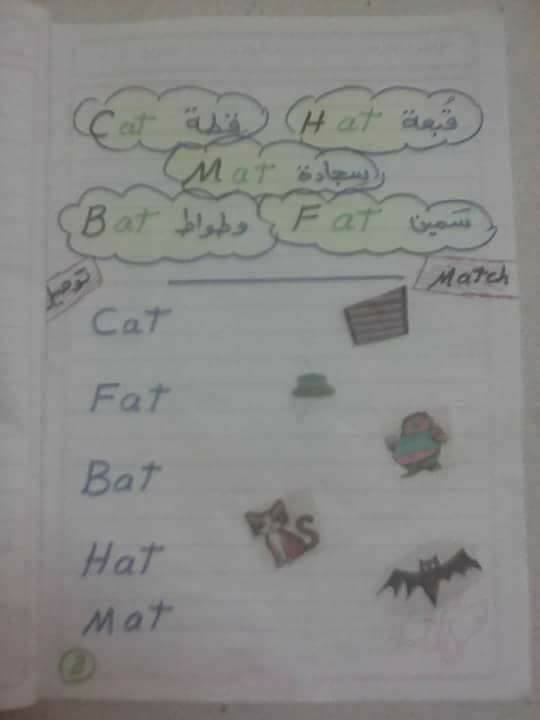 Cat قطة Hat قُبعة
Mat سجادة
Bat وطواط Fat سَمين
توصيل Match
Cat
Fat
Bat
Hat
Mat